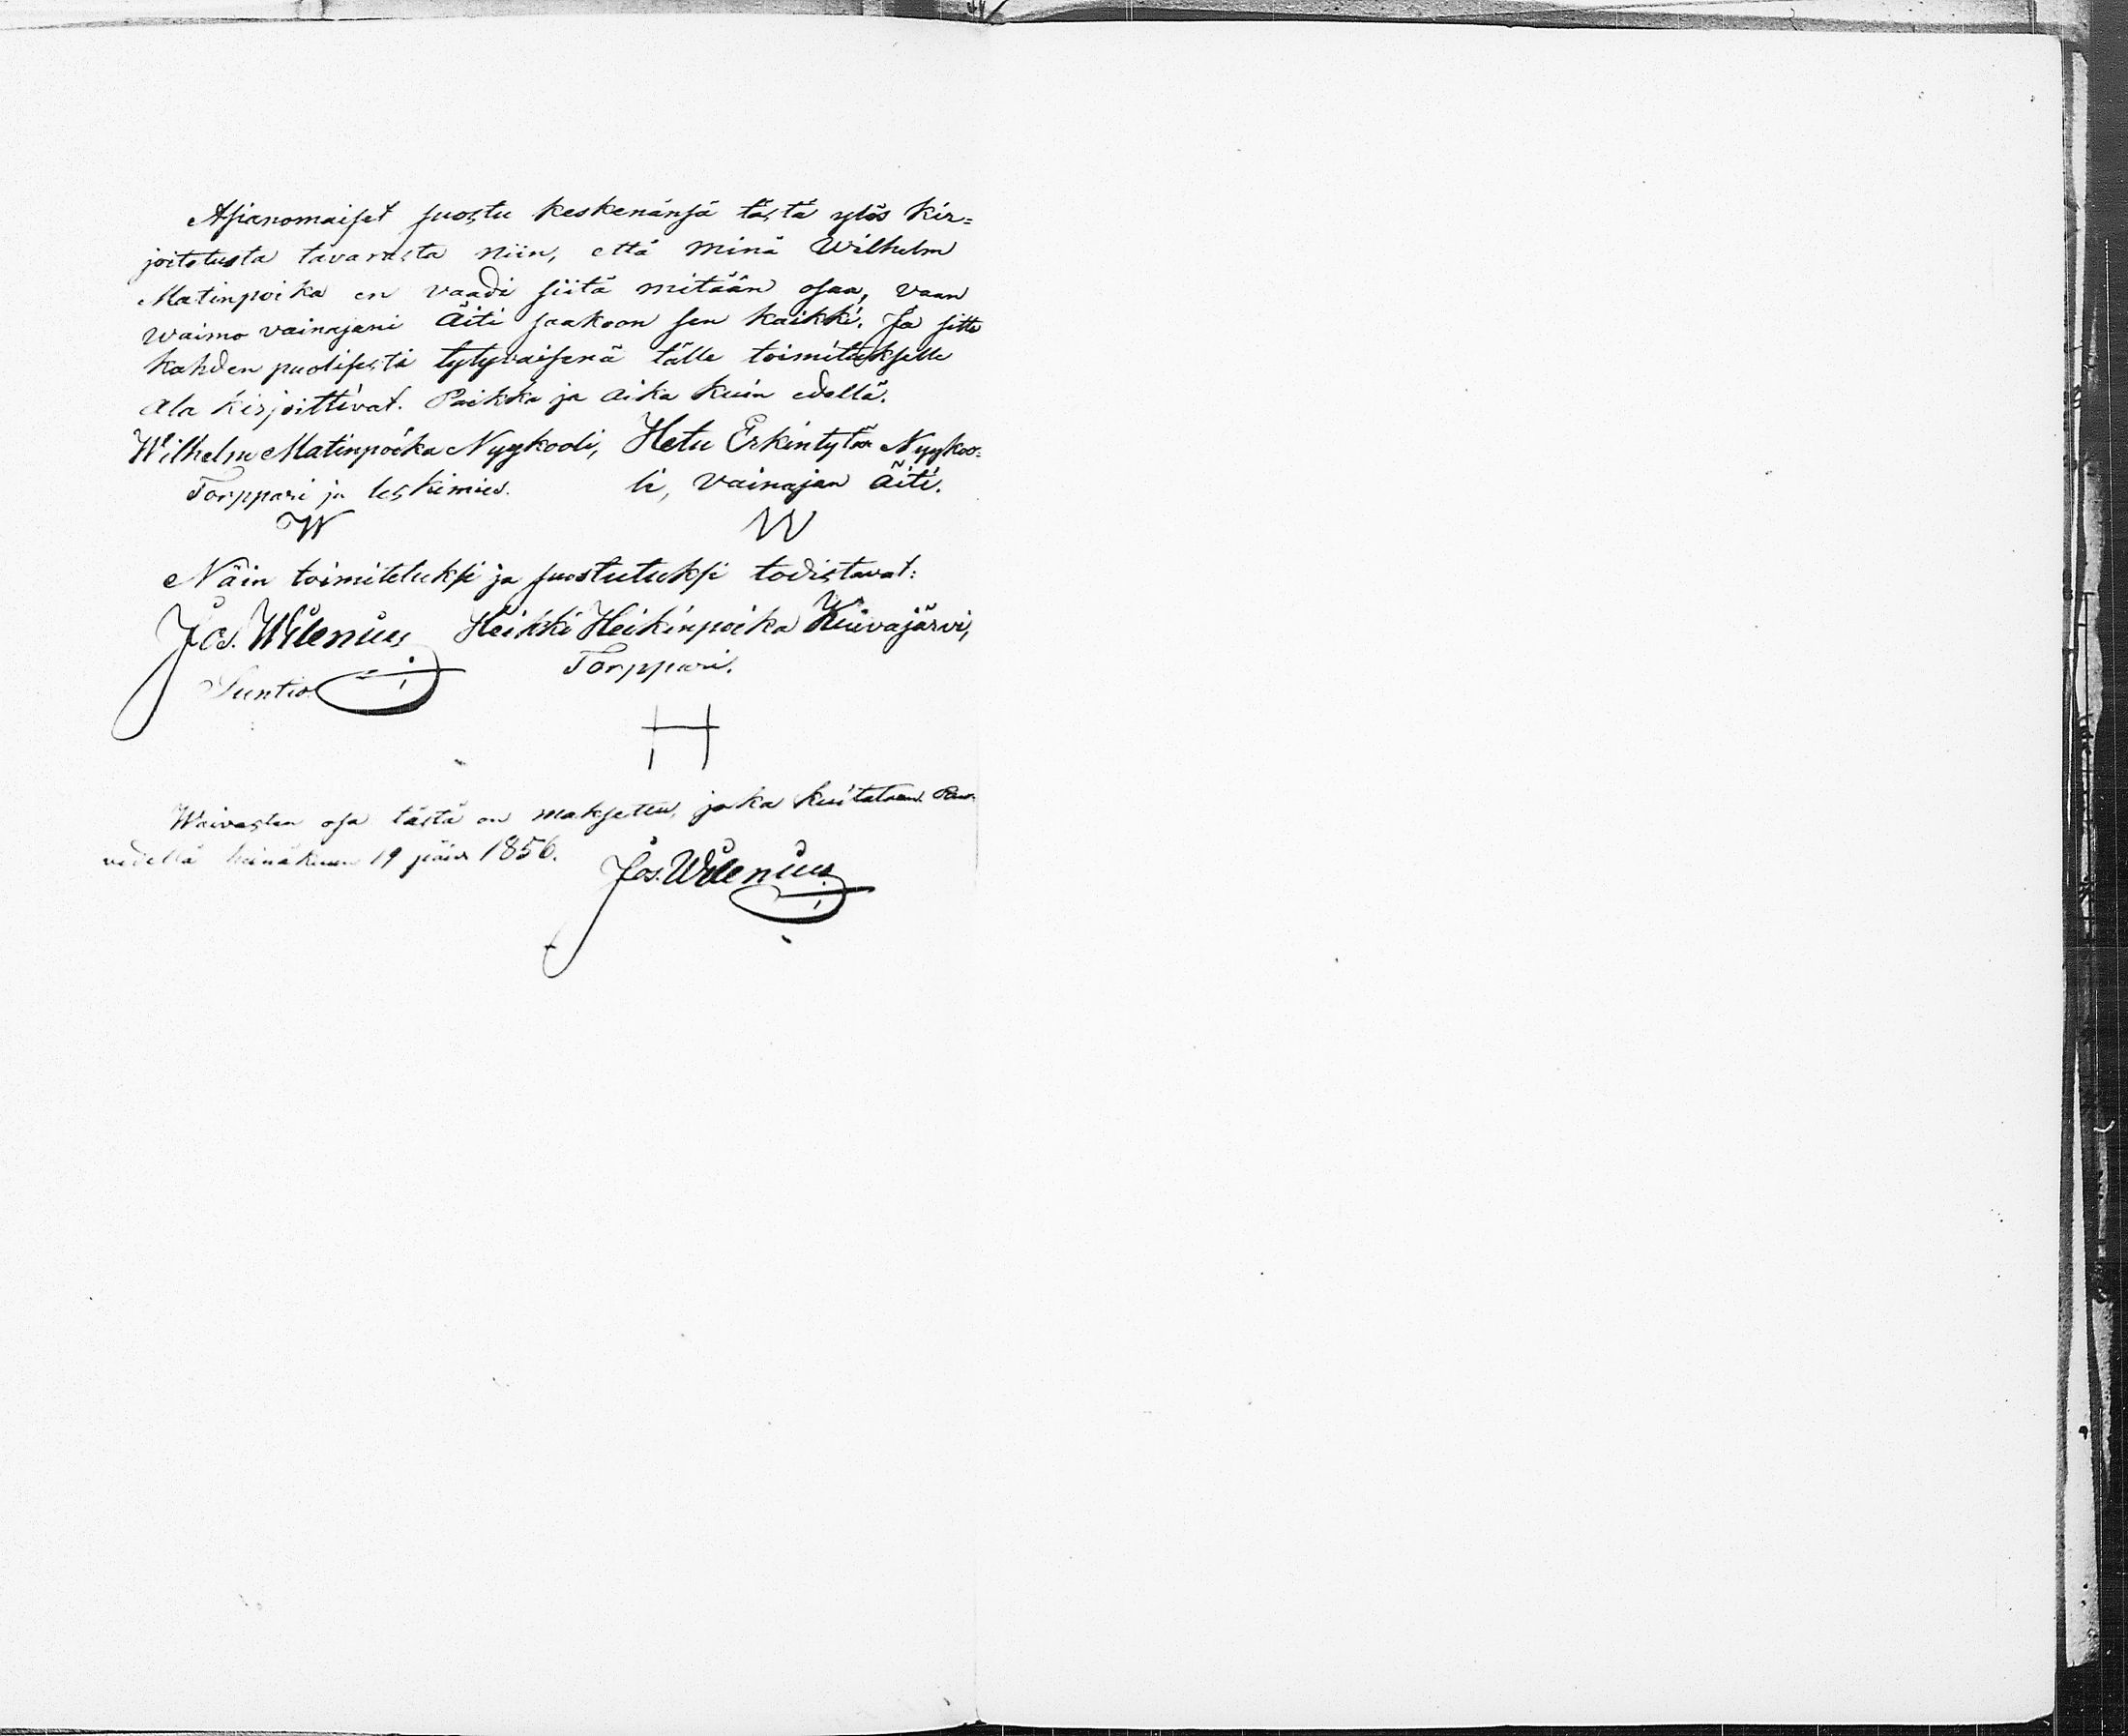 Asianomaiset suostu keskenänsä tästä ylös kir=
joitetusta tavarasta niin, että minä Wilhelm
Matinpoika en vaadi siitä mitään osaa, vaan
waimo vainajani Äiti saakoon sen kaikki. Ja sitte
kahden puolisesti tytyväisenä tälle toimitukselle
ala kirjoittivat. Paikka ja aika kuin edellä.
Wilhelm Matinpoika Nygkooli, Hetu Erkintytär Nygkoo=
Torppari ja leskimies. li, vainajan Äiti.
W W
Näin toimitetuksi ja suostutuksi todistavat:
Jos. Wilenius Heikki Heikinpoika Kuivajärvi,
Suntio. Torppari.
H
Waivasten osa tästä on maksettu, joka kuitataan. Ruo-
vedellä heinäkuun 19 päiv. 1856.
Jos. Wilenius